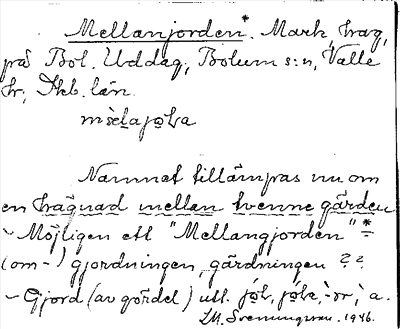 Mellanjorden*. Mark, hag,
på Bol. Uddag, Bolum s:n, Valle
hr, Skb. län.
Namnet tillämpas nu om
en hägnad mellan tvenne gärden
- Möjligen ett "Mellangjorden" *
(om-) gjordningen, gärdningen ??
- Gjord (av gördel) utt.
1946.